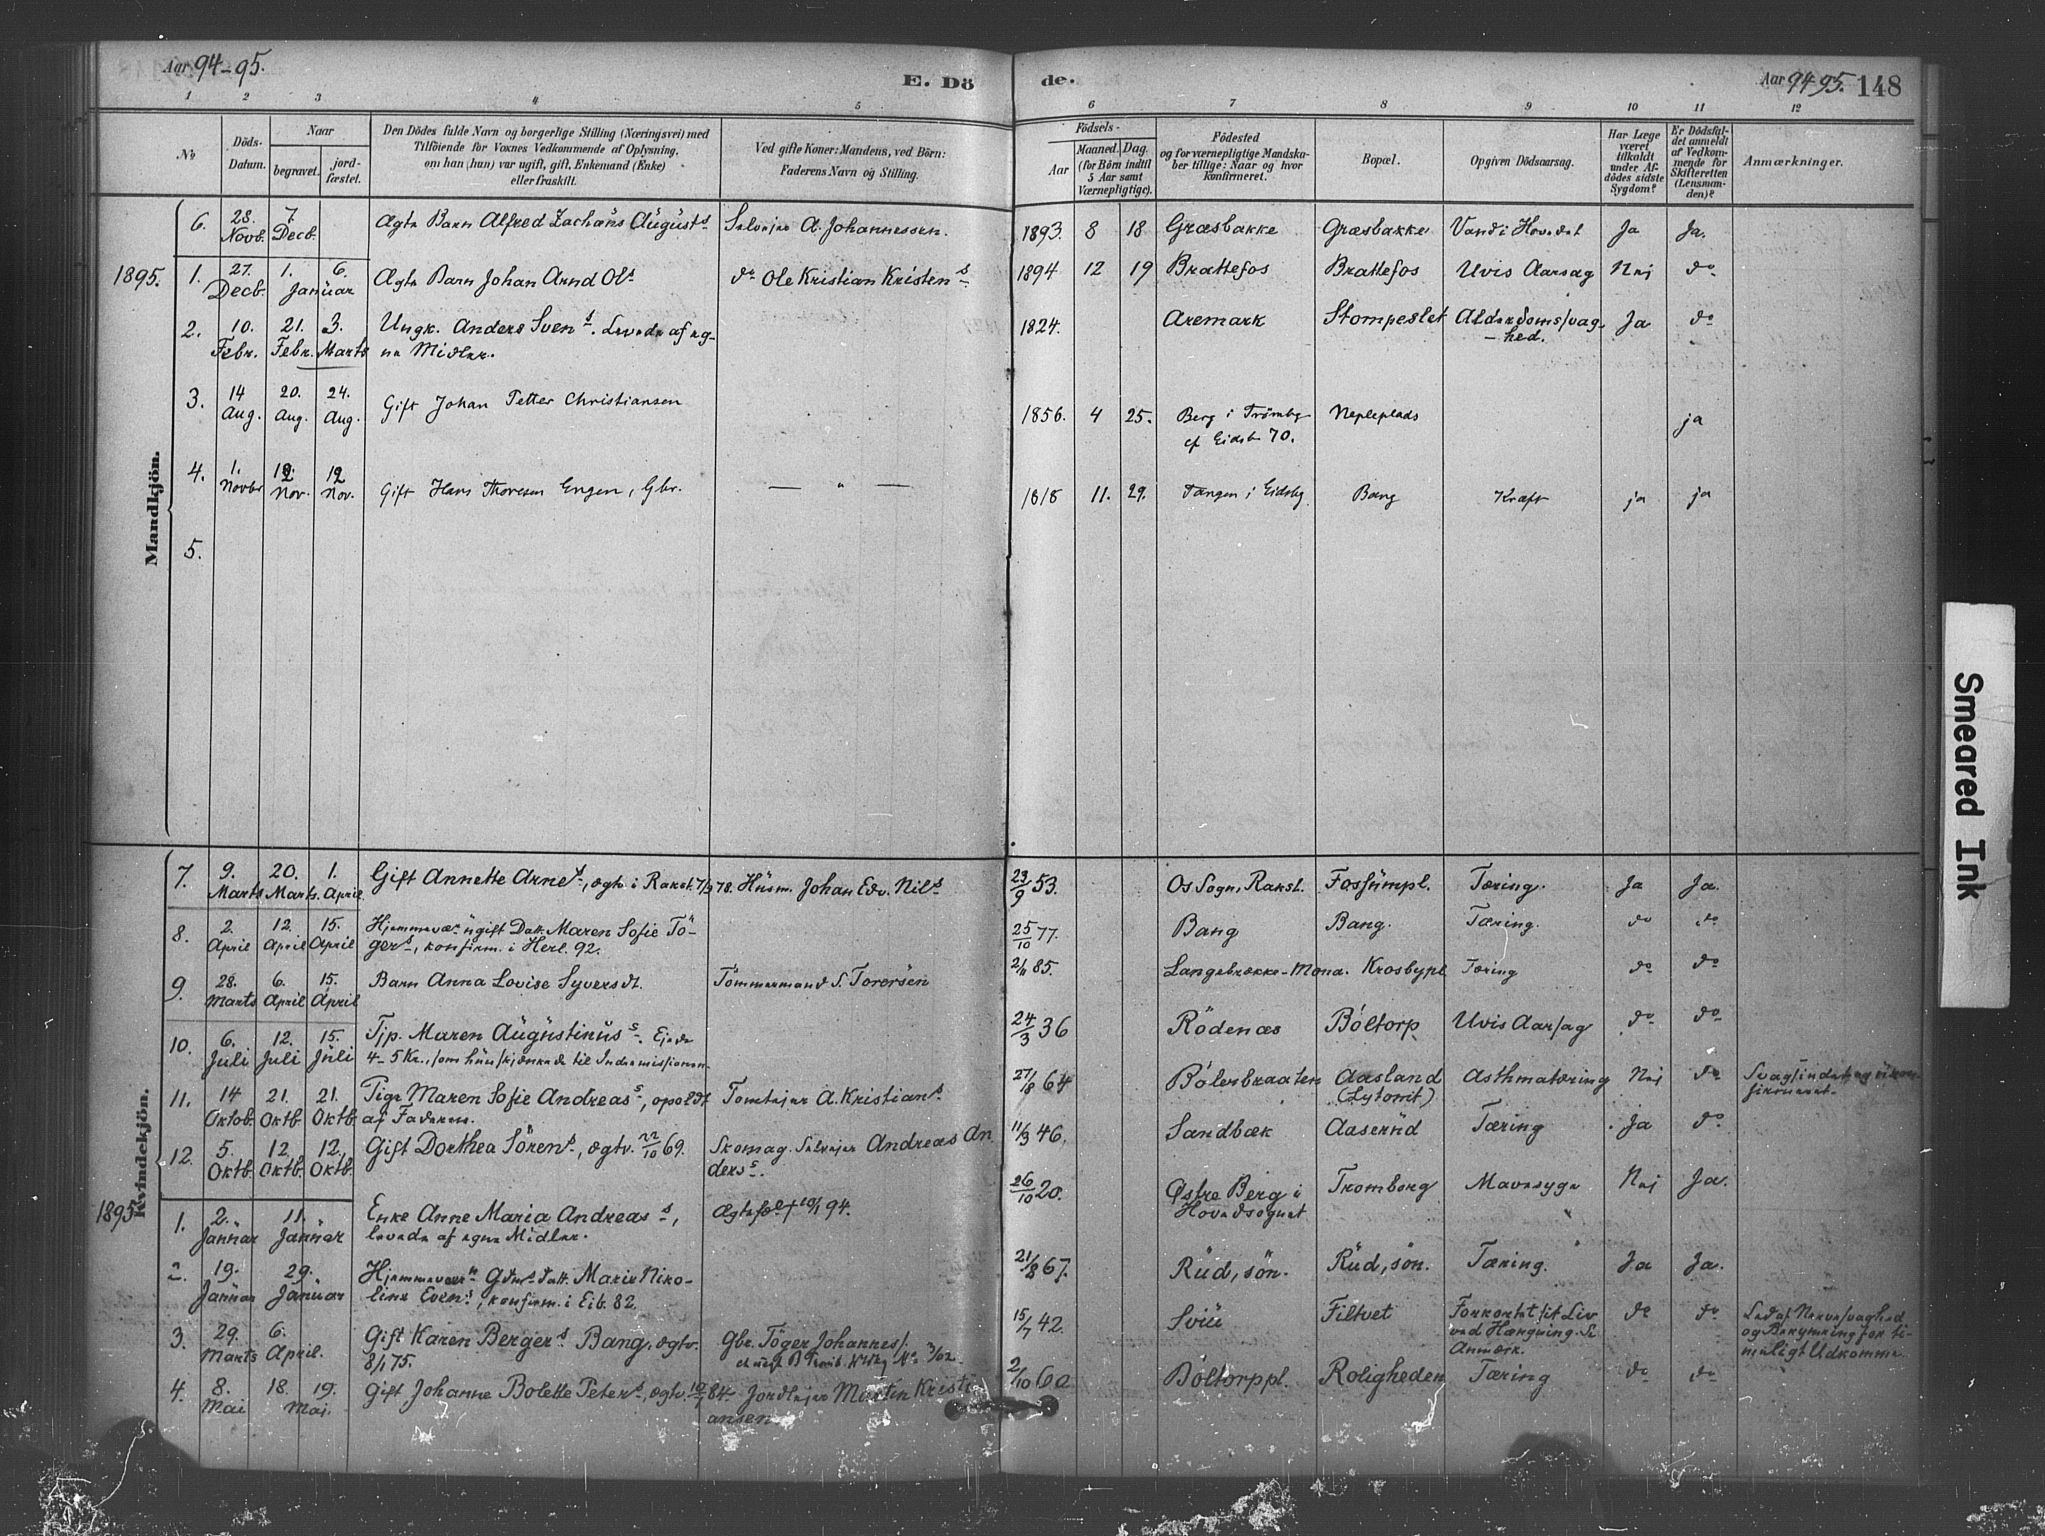 Aar 94-95.
E. Dö
de.
Aar 94-95. 148
1 2 3 4 5 6 7 8 9 10 11 12
No
Döds-
Datum.
Naar
begravet.
jord-
fæstet.
Den Dödes fulde Navn og borgerlige Stilling (Næringsvei) med
Tilföiende for Voxnes Vedkommende af Oplysning,
om han (hun) var ugift, gift, Enkemand (Enke)
eller fraskilt.
Ved gifte Koner: Mandens, ved Börn:
Faderens Navn og Stilling.
Födsels-
Aar
Maaned. Dag.
(for Börn indtil
5 Aar samt
Værnepligtige).
Födested
og for værnepligtige Mandska-
ber tillige: Naar og hvor
konfirmeret.
Bopæl.
Opgiven Dödsaarsag.
Har Læge
været
tilkaldt
under Af-
dödes sidste
Sygdom?
Er Dödsfal-
det anmeldt
af Vedkom-
mende for
Skifteretten
(Lensman-
den)?
Anmærkninger.
Mandkjön.
6. 28. Novb. 7. Decb. Ægte Barn Alfred Zachäus Augusts Selveier A. Johannessen. 1893. 8 18 Græsbakke Græsbakke Vand i Hovedet Ja Ja.
1895. 1. 27. Decb. 1. 6. Januar Ægte Barn Johan Arnd Ols do Ole Kristian Kristens 1894 12 19 Brattefos Brattefos Uvis Aarsag Nej do
2. 10. Febr. 21. Febr. 3. Marts Ungk. Anders Svens. Levede af eg-
ne Midler. 1824. Aremark Stompeslet Alderdomssvag-
hed. Ja do
3. 14 Aug. 20. Aug. 24. Aug. Gift Johan Petter Christiansen 1856. 4 25. Berg i Trömbg
cf Eidsb 70. Nepleplads ja
4. 1. Novbr 12. Nov. 12 Nov. Gift Hans Thoresen Engen, Gbr. — " — 1818 11. 29. Tangen i Eidsbg Bang Kræft ja ja
5.
Kvindekjön.
7. 9. Marts 20. Marts. 1. April Gift Annette Arnes, ægtv. i Rakst. 7/9 78. Husm. Johan Edv. Nils 23/9 53. Os Sogn, Rakst. Fossumpl. Tæring. Ja Ja.
8. 2. April 12. April 15. April Hjemmevær. ugift Datt. Maren Sofie Tö-
gers, konfirm. i Herl. 92. 25/10 77. Bang Bang. Tæring. do do
9. 28. Marts 6. April 15. April Barn Anna Lovise Syversdt. Tömmermand S. Torersen 2/11 85. Langebrække-Mona. Krosbypl Tæring do do
10. 6. Juli 12. Juli 15. Juli Tjp. Maren Augustinuss. Ejede
4-5 Kr., som hun skjænkede til Indremissionen 24/3 36 Rödenæs Böltorp Uvis Aarsag do do
11. 14 Oktob. 21. Oktb 21. Oktb. Pige Maren Sofie Andreass, opoldt
af Faderen. Tomtejer A. Kristians. 27/8 64 Bölerbraaten Aasland
(Lytomt) Asthmatæring Nej do
12. 5. Oktb. 12. Oktb. 12. Oktb. Gift Dorthea Sörens, ægtv. 22/10 69. Skomag. Selvejer Andreas An
derss. 11/3 46. Sandbæk Aaserud Tæring Ja do
1895. 1. 2. Januar 11. Januar Enke Anne Maria Andreass,
levede af egne Midler. 26/10 20. Østre Berg i
Hovedsognet Tromborg Mavesyge Nej Ja.
2. 19. Januar 29. Januar Hjemmevær. Gdms Datt. Marie Niko-
line Evens, konfirm. i Eib. 82. 21/8 67. Rud, sön. Rud, sön. Tæring. Ja Ja.
3. 29. Marts 6. April. Gift Karen Bergers Bang, ægtv.
8/1 75. Gbr. Töger Johanness. 15/7 42. Sviu Filtvet Forkortet sit Liv
ved Hængning. Se
Anmærk. do do Led af Nervesvaghed
og Bekymring for ti-
meligt Udkomme
4. 8. Mai 18. 19. Mai. Gift Johanne Bolette Peters, ægtv. 84. Jordlejer Martin Kristi
ansen 2/10 60 Böltorppl. Roligheden Tæring do do
Smeared Ink